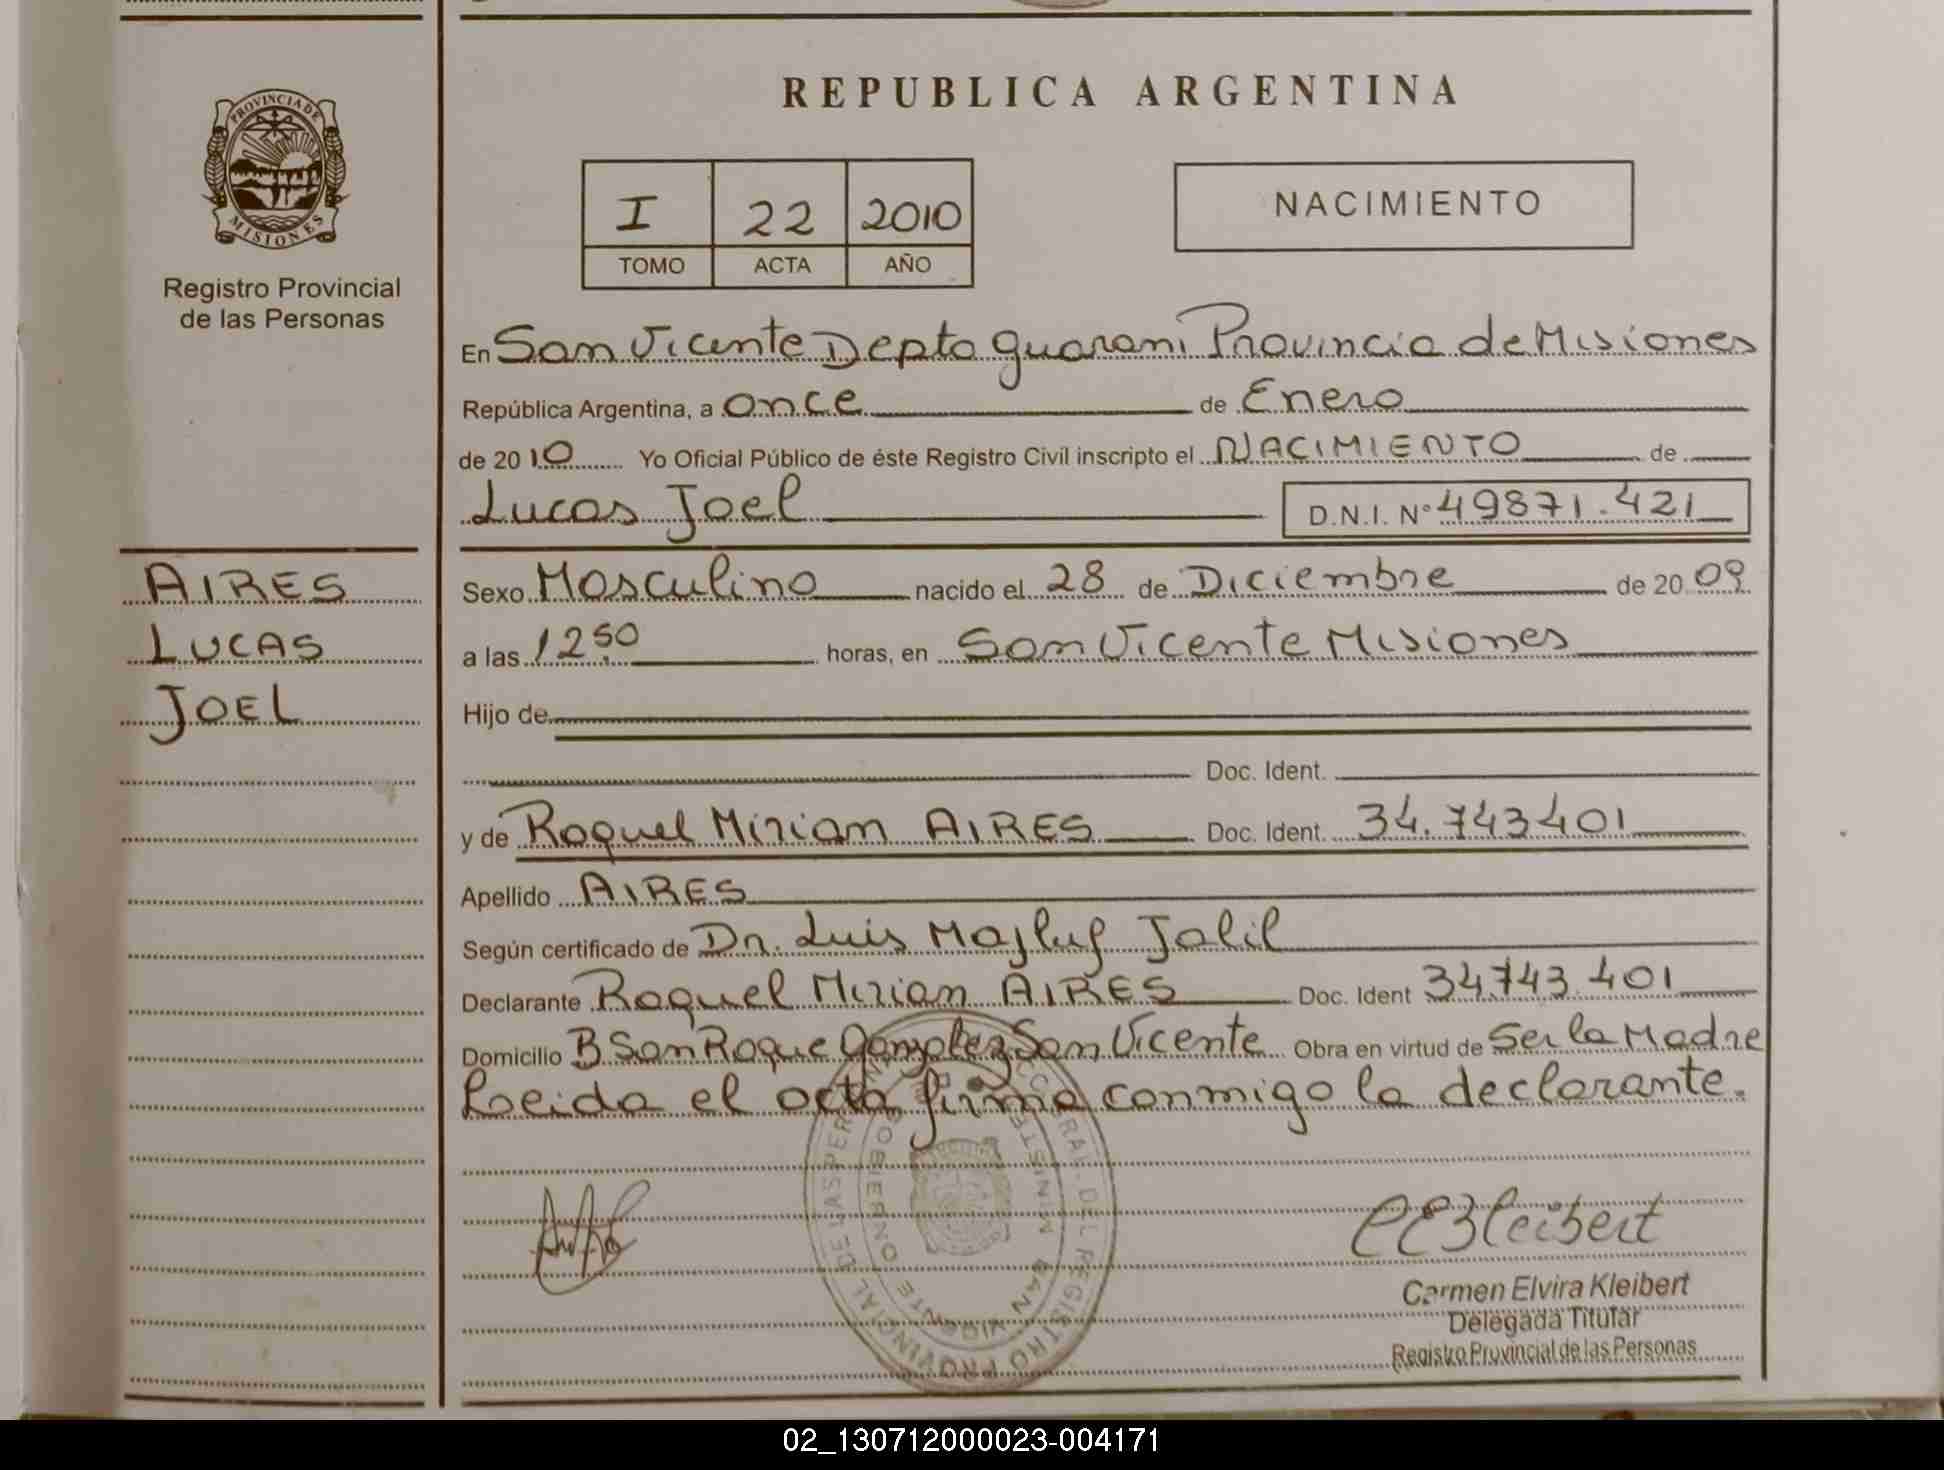 REPUBLICA ARGENTINA
PROVINCIA DE MISIONES
Registro Provincial
de las Personas
I 22 2010
TOMO ACTA AÑO
NACIMIENTO
En San Vicente Depto Guarani Provincia de Misiones
República Argentina, a once de Enero
de 2010 Yo Oficial Público de éste Registro Civil inscripto el NACIMIENTO de
Lucas Joel D.N.I. N° 49871.421
AIRES
LUCAS
JOEL
Sexo Masculino nacido el 28 de Diciembre de 2009
a las 12.50 horas, en San Vicente Misiones
Hijo de
Doc. Ident.
y de Raquel Mirian AIRES Doc. Ident. 34.743401
Apellido AIRES
Según certificado de Dr. Luis Majluf Jalil
Declarante Raquel Mirian AIRES Doc. Ident 34743.401
Domicilio B San Roque Gonzalez San Vicente Obra en virtud de Ser la Madre
Leida el acta firma conmigo la declarante.
CEKleibert
Carmen Elvira Kleibert
Delegada Titular
Registro Provincial de las Personas
02_130712000023-004171